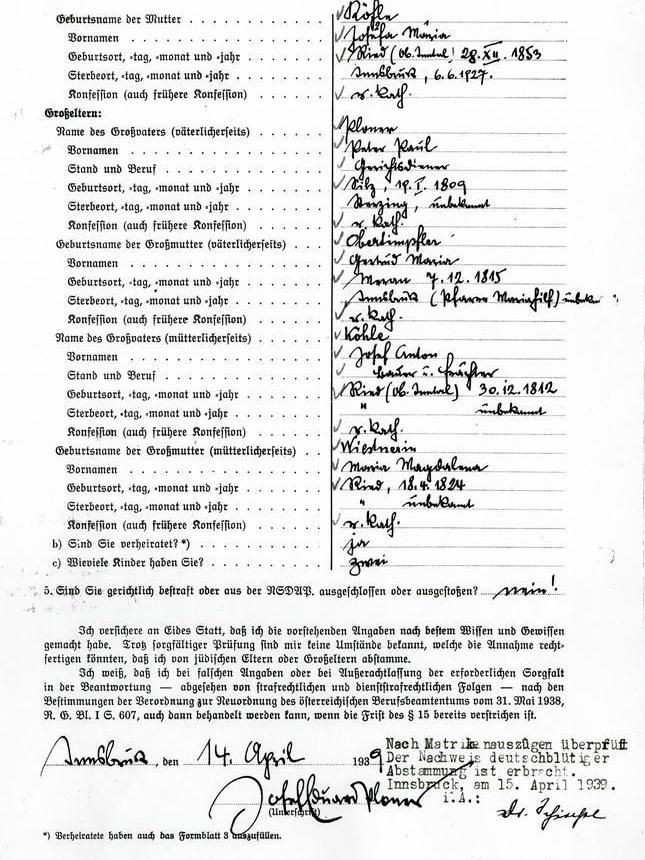 Geburtsname der Mutter . . . . . . . . . . Köhle
Vornamen . . . . . . . . . . Josefa Maria
Geburtsort, =tag, =monat und =jahr . . . . . . . . . . Ried (Ob. Inntal) 28. XII. 1853
Sterbeort, =tag, =monat und =jahr . . . . . . . . . . Innsbruck, 6.6.1927.
Konfession (auch frühere Konfession) . . . . . . . . . . r. kath.
Großeltern:
Name des Großvaters (väterlicherseits) . . . . . . . . . . Ploner
Vornamen . . . . . . . . . . Peter Paul
Stand und Beruf . . . . . . . . . . Gerichtsdiener
Geburtsort, =tag, =monat und =jahr . . . . . . . . . . Silz, I. 1809
Sterbeort, =tag, =monat und =jahr . . . . . . . . . . Sterzing, unbekannt
Konfession (auch frühere Konfession) . . . . . . . . . . r. kath.
Geburtsname der Großmutter (väterlicherseits) . . . Obertimpfler
Vornamen . . . . . . . . . . Gertrud Maria
Geburtsort, =tag, =monat und =jahr . . . . . . . . . . Meran 7.12.1815
Sterbeort, =tag, =monat und =jahr . . . . . . . . . . Innsbruck (Pfarre Mariahilf) unbekannt
Konfession (auch frühere Konfession) . . . . . . . . . . r. kath.
Name des Großvaters (mütterlicherseits) . . . . . . . . . . Köhle
Vornamen . . . . . . . . . . Josef Anton
Stand und Beruf . . . . . . . . . . Bauer u.
Geburtsort, =tag, =monat und =jahr . . . . . . . . . . Ried (Ob. Inntal) 30.12.1812
Sterbeort, =tag, =monat und =jahr . . . . . . . . . . " unbekannt
Konfession (auch frühere Konfession) . . . . . . . . . . r. kath.
Geburtsname der Großmutter (mütterlicherseits) . .
Vornamen . . . . . . . . . . Maria Magdalena
Geburtsort, =tag, =monat und =jahr . . . . . . . . . . Ried, 18.4.1824
Sterbeort, =tag, =monat und =jahr . . . . . . . . . . " unbekannt
Konfession (auch frühere Konfession) . . . . . . . . . . r. kath.
b) Sind Sie verheiratet? *) . . . . . . . . . . ja
c) Wieviele Kinder haben Sie? . . . . . . . . . . zwei
5. Sind Sie gerichtlich bestraft oder aus der NSDAP. ausgeschlossen oder ausgestoßen? nein!
Ich versichere an Eides Statt, daß ich die vorstehenden Angaben nach bestem Wissen und Gewissen
gemacht habe. Trotz sorgfältiger Prüfung sind mir keine Umstände bekannt, welche die Annahme recht=
fertigen könnten, daß ich von jüdischen Eltern oder Großeltern abstamme.
Ich weiß, daß ich bei falschen Angaben oder bei Außerachtlassung der erforderlichen Sorgfalt
in der Beantwortung — abgesehen von strafrechtlichen und dienststrafrechtlichen Folgen — nach den
Bestimmungen der Verordnung zur Neuordnung des österreichischen Berufsbeamtentums vom 31. Mai 1938,
R. G. Bl. I S. 607, auch dann behandelt werden kann, wenn die Frist des § 15 bereits verstrichen ist.
Innsbruck, den 14. April 1939
Nach Matrikenauszügen überprüft
Der Nachweis deutschblütiger
Abstammung ist erbracht.
Innsbruck, am 15. April 1939.
i.A.:
Josef Eduard Ploner
(Unterschrift)
*) Verheiratete haben auch das Formblatt 3 auszufüllen.